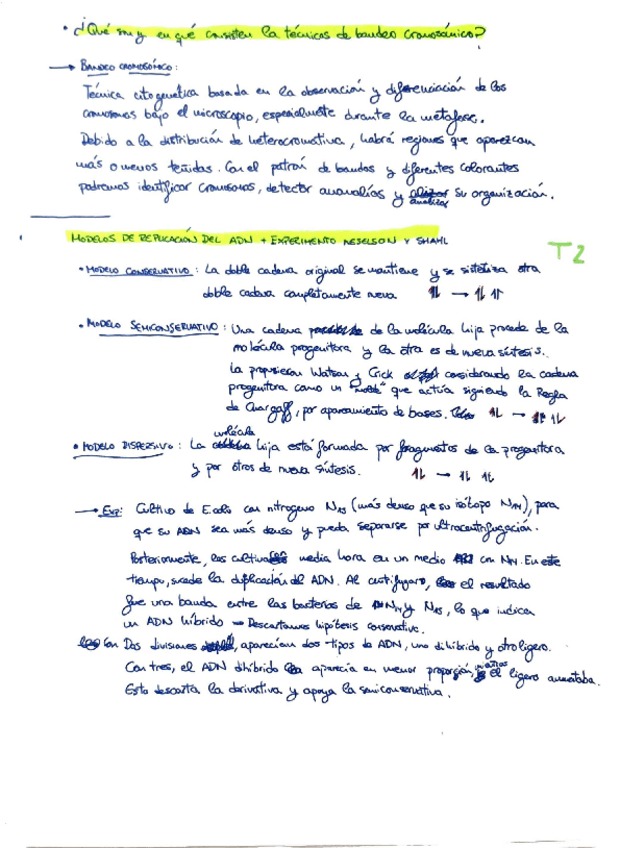 • ¿Qué son y en qué consisten la técnicas de bandeo cromosómico?
→ BANDEO CROMOSÓMICO:
Técnica citogenética basada en la observación y diferenciación de los
cromosomas bajo el microscopio, especialmente durante la metafase.
Debido a la distribución de heterocromativa, habrá regiones que aparezcan
más o menos teñidas. Con el patrón de bandas y diferentes colorantes
podremos identificar cromosomas, detectar anomalías y analizar su organización.
MODELOS DE REPLICACIÓN DEL ADN + EXPERIMENTO MESELSON Y SHAHL
T2
• MODELO CONSERVATIVO: La doble cadena original se mantiene y se sintetiza otra
doble cadena completamente nueva →
• MODELO SEMICONSERVATIVO: Una cadena de la molécula hija procede de la
molécula progenitora y la otra es de nueva síntesis.
La propusieron Watson y Crick considerando la cadena
progenitora como un "molde" que actúa siguiendo la Regla
de Chargaff, por apareamiento de bases. →
• MODELO DISPERSIVO: La molécula hija está formada por fragmentos de la progenitora
y por otros de nueva síntesis. →
→ Exp: Cultivo de E.coli con nitrógeno N15 (más denso que su isótopo N14), para
que su ADN sea más denso y pueda separarse por ultracentrifugación.
Posteriormente, las cultiva media hora en un medio con N14. En este
tiempo, sucede la duplicación del ADN. Al centrifugarlo, el resultado
fue una banda entre las bacterias de N14 y N15, lo que indica
un ADN híbrido → Descartamos hipótesis conservativa.
Con Dos divisiones, aparecían dos tipos de ADN, uno dihíbrido y otro ligero.
Con tres, el ADN dihíbrido aparecía en menor proporción, mientras el ligero aumentaba.
Esto descarta la derivativa y apoya la semiconservativa.